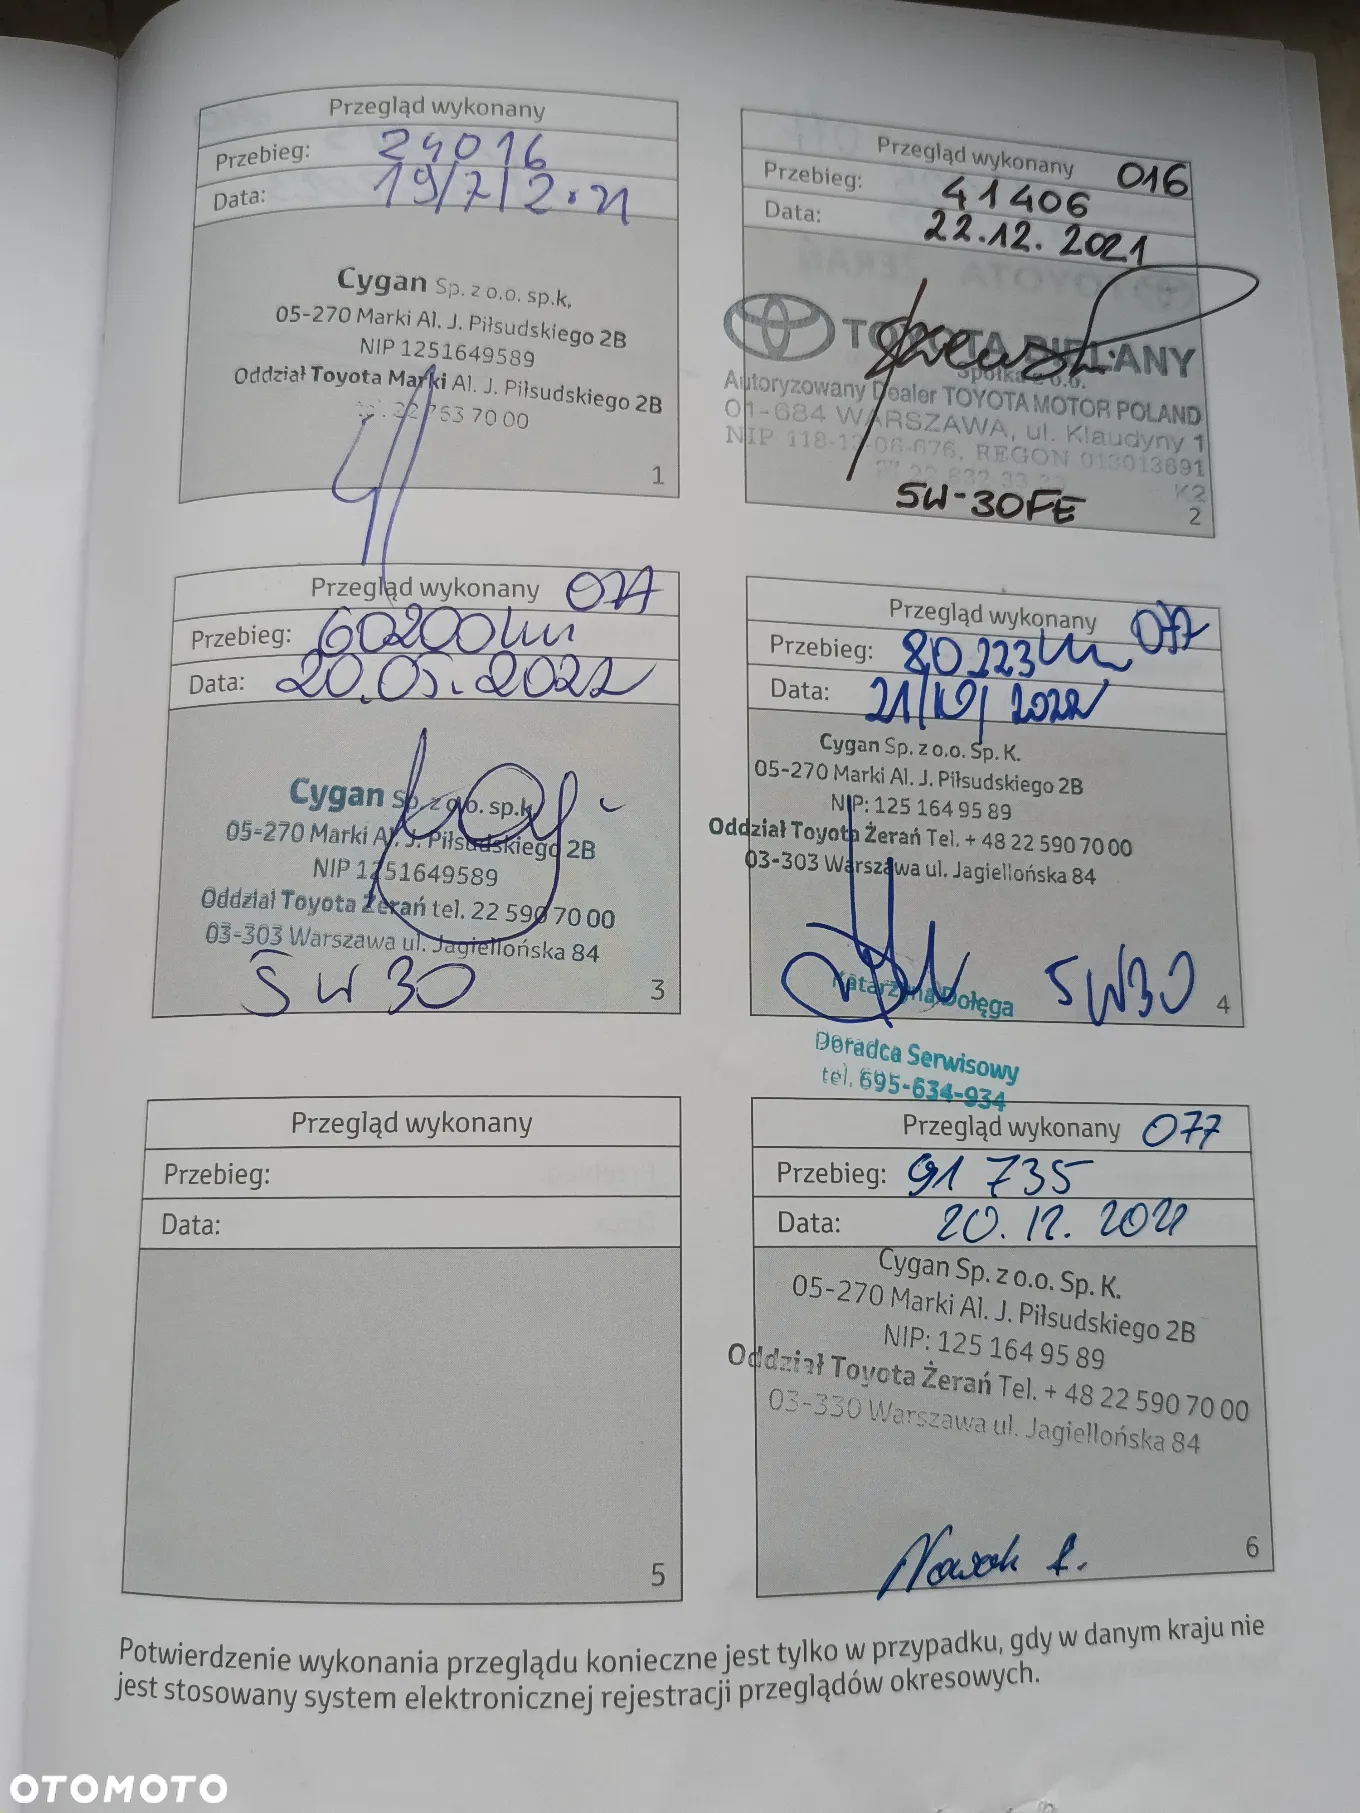 Przegląd wykonany
Przebieg: 24016
Data: 19/7/2021
Cygan Sp. z o.o. sp.k.
05-270 Marki Al. J. Piłsudskiego 2B
NIP 1251649589
Oddział Toyota Marki Al. J. Piłsudskiego 2B
tel. 22 763 70 00
1
Przegląd wykonany 016
Przebieg: 41406
Data: 22.12.2021
TOYOTA BIELANY
Spółka z o.o.
Autoryzowany Dealer TOYOTA MOTOR POLAND
01-684 WARSZAWA, ul. Klaudyny 1
NIP 118-13-06-676, REGON 013013691
K2
5W-30FE
2
Przegląd wykonany 077
Przebieg: 60200km
Data: 20.05.2022
Cygan Sp. z o.o. sp.k.
05-270 Marki Al. J. Piłsudskiego 2B
NIP 1251649589
Oddział Toyota Żerań tel. 22 590 70 00
03-303 Warszawa ul. Jagiellońska 84
5W30
3
Przegląd wykonany 077
Przebieg: 80223km
Data: 21/10/2022
Cygan Sp. z o.o. Sp. K.
05-270 Marki Al. J. Piłsudskiego 2B
NIP: 125 164 95 89
Oddział Toyota Żerań Tel. + 48 22 590 70 00
03-303 Warszawa ul. Jagiellońska 84
Katarzyna Dołęga
5W30
4
Doradca Serwisowy
tel. 695-634-934
Przegląd wykonany
Przebieg:
Data:
5
Przegląd wykonany 077
Przebieg: 91 735
Data: 20.12.2022
Cygan Sp. z o.o. Sp. K.
05-270 Marki Al. J. Piłsudskiego 2B
NIP: 125 164 95 89
Oddział Toyota Żerań Tel. + 48 22 590 70 00
03-330 Warszawa ul. Jagiellońska 84
Nowak
6
Potwierdzenie wykonania przeglądu konieczne jest tylko w przypadku, gdy w danym kraju nie
jest stosowany system elektronicznej rejestracji przeglądów okresowych.
OTOMOTO